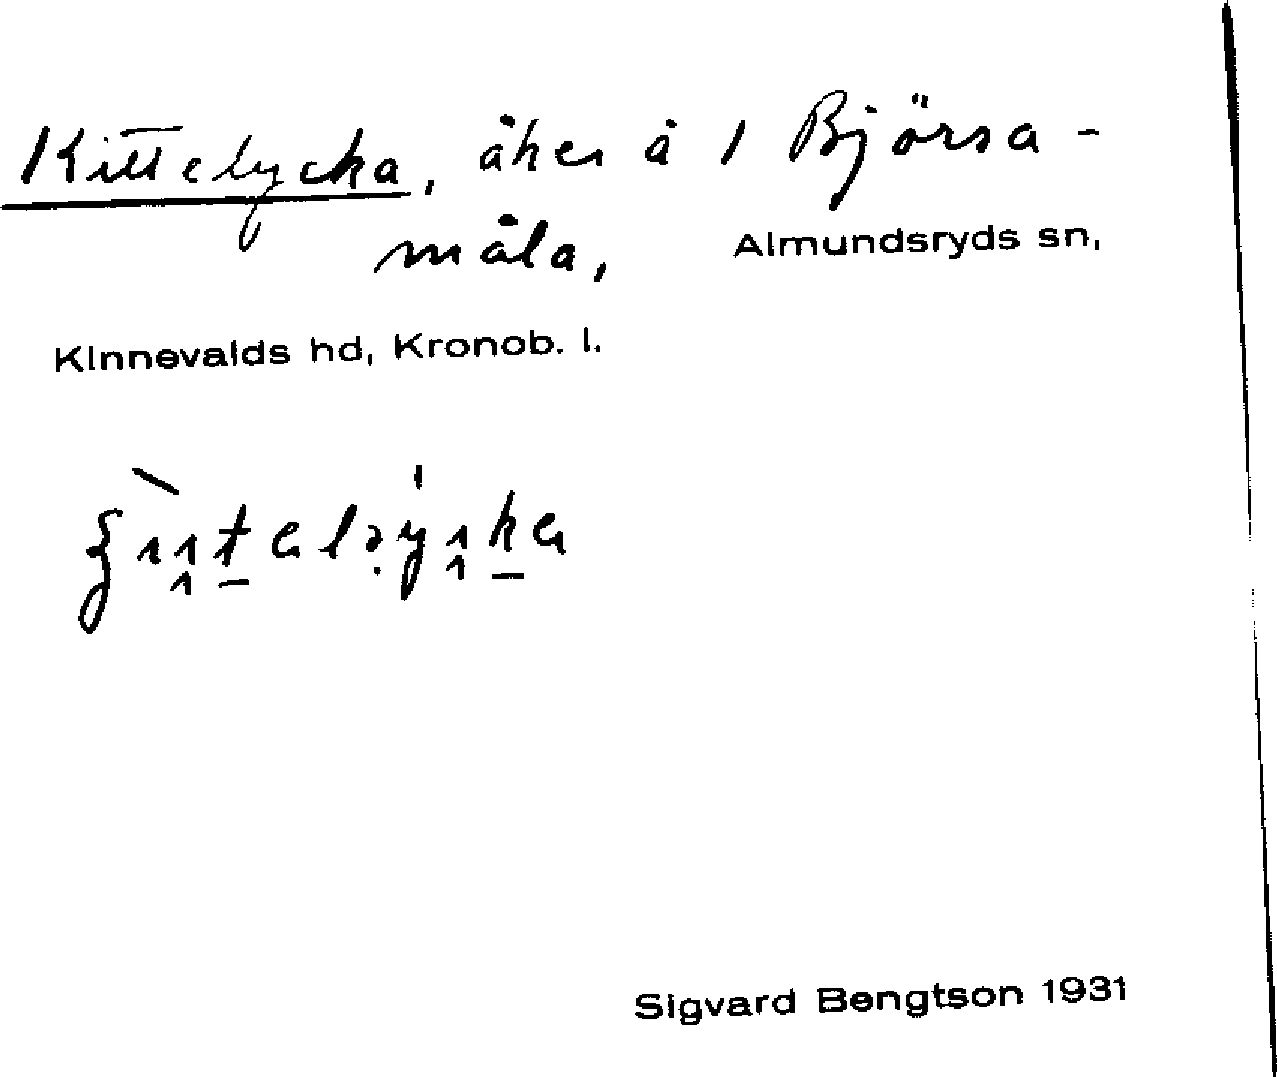 Kittelycka, åker å 1 Björsa-
måla, Almundsryds sn,
Kinnevalds hd, Kronob. l.
Sigvard Bengtson 1931